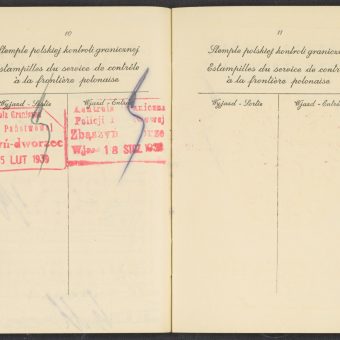 10
Stemple polskiej kontroli granicznej
Estampilles du service de contrôle
à la frontière polonaise
Wyjazd - Sortie
Wjazd - Entrée
Państwowej
yń-dworzec
5 LUT 1939
Kontrola
aniczna
Policji
wowej
Zbąszyń
orze
Wjaz
18
11
Stemple polskiej kontroli graniczne
Estampilles du service de cont
à la frontière polonaise
Wyjazd - Sortie
Wjazd - Entré